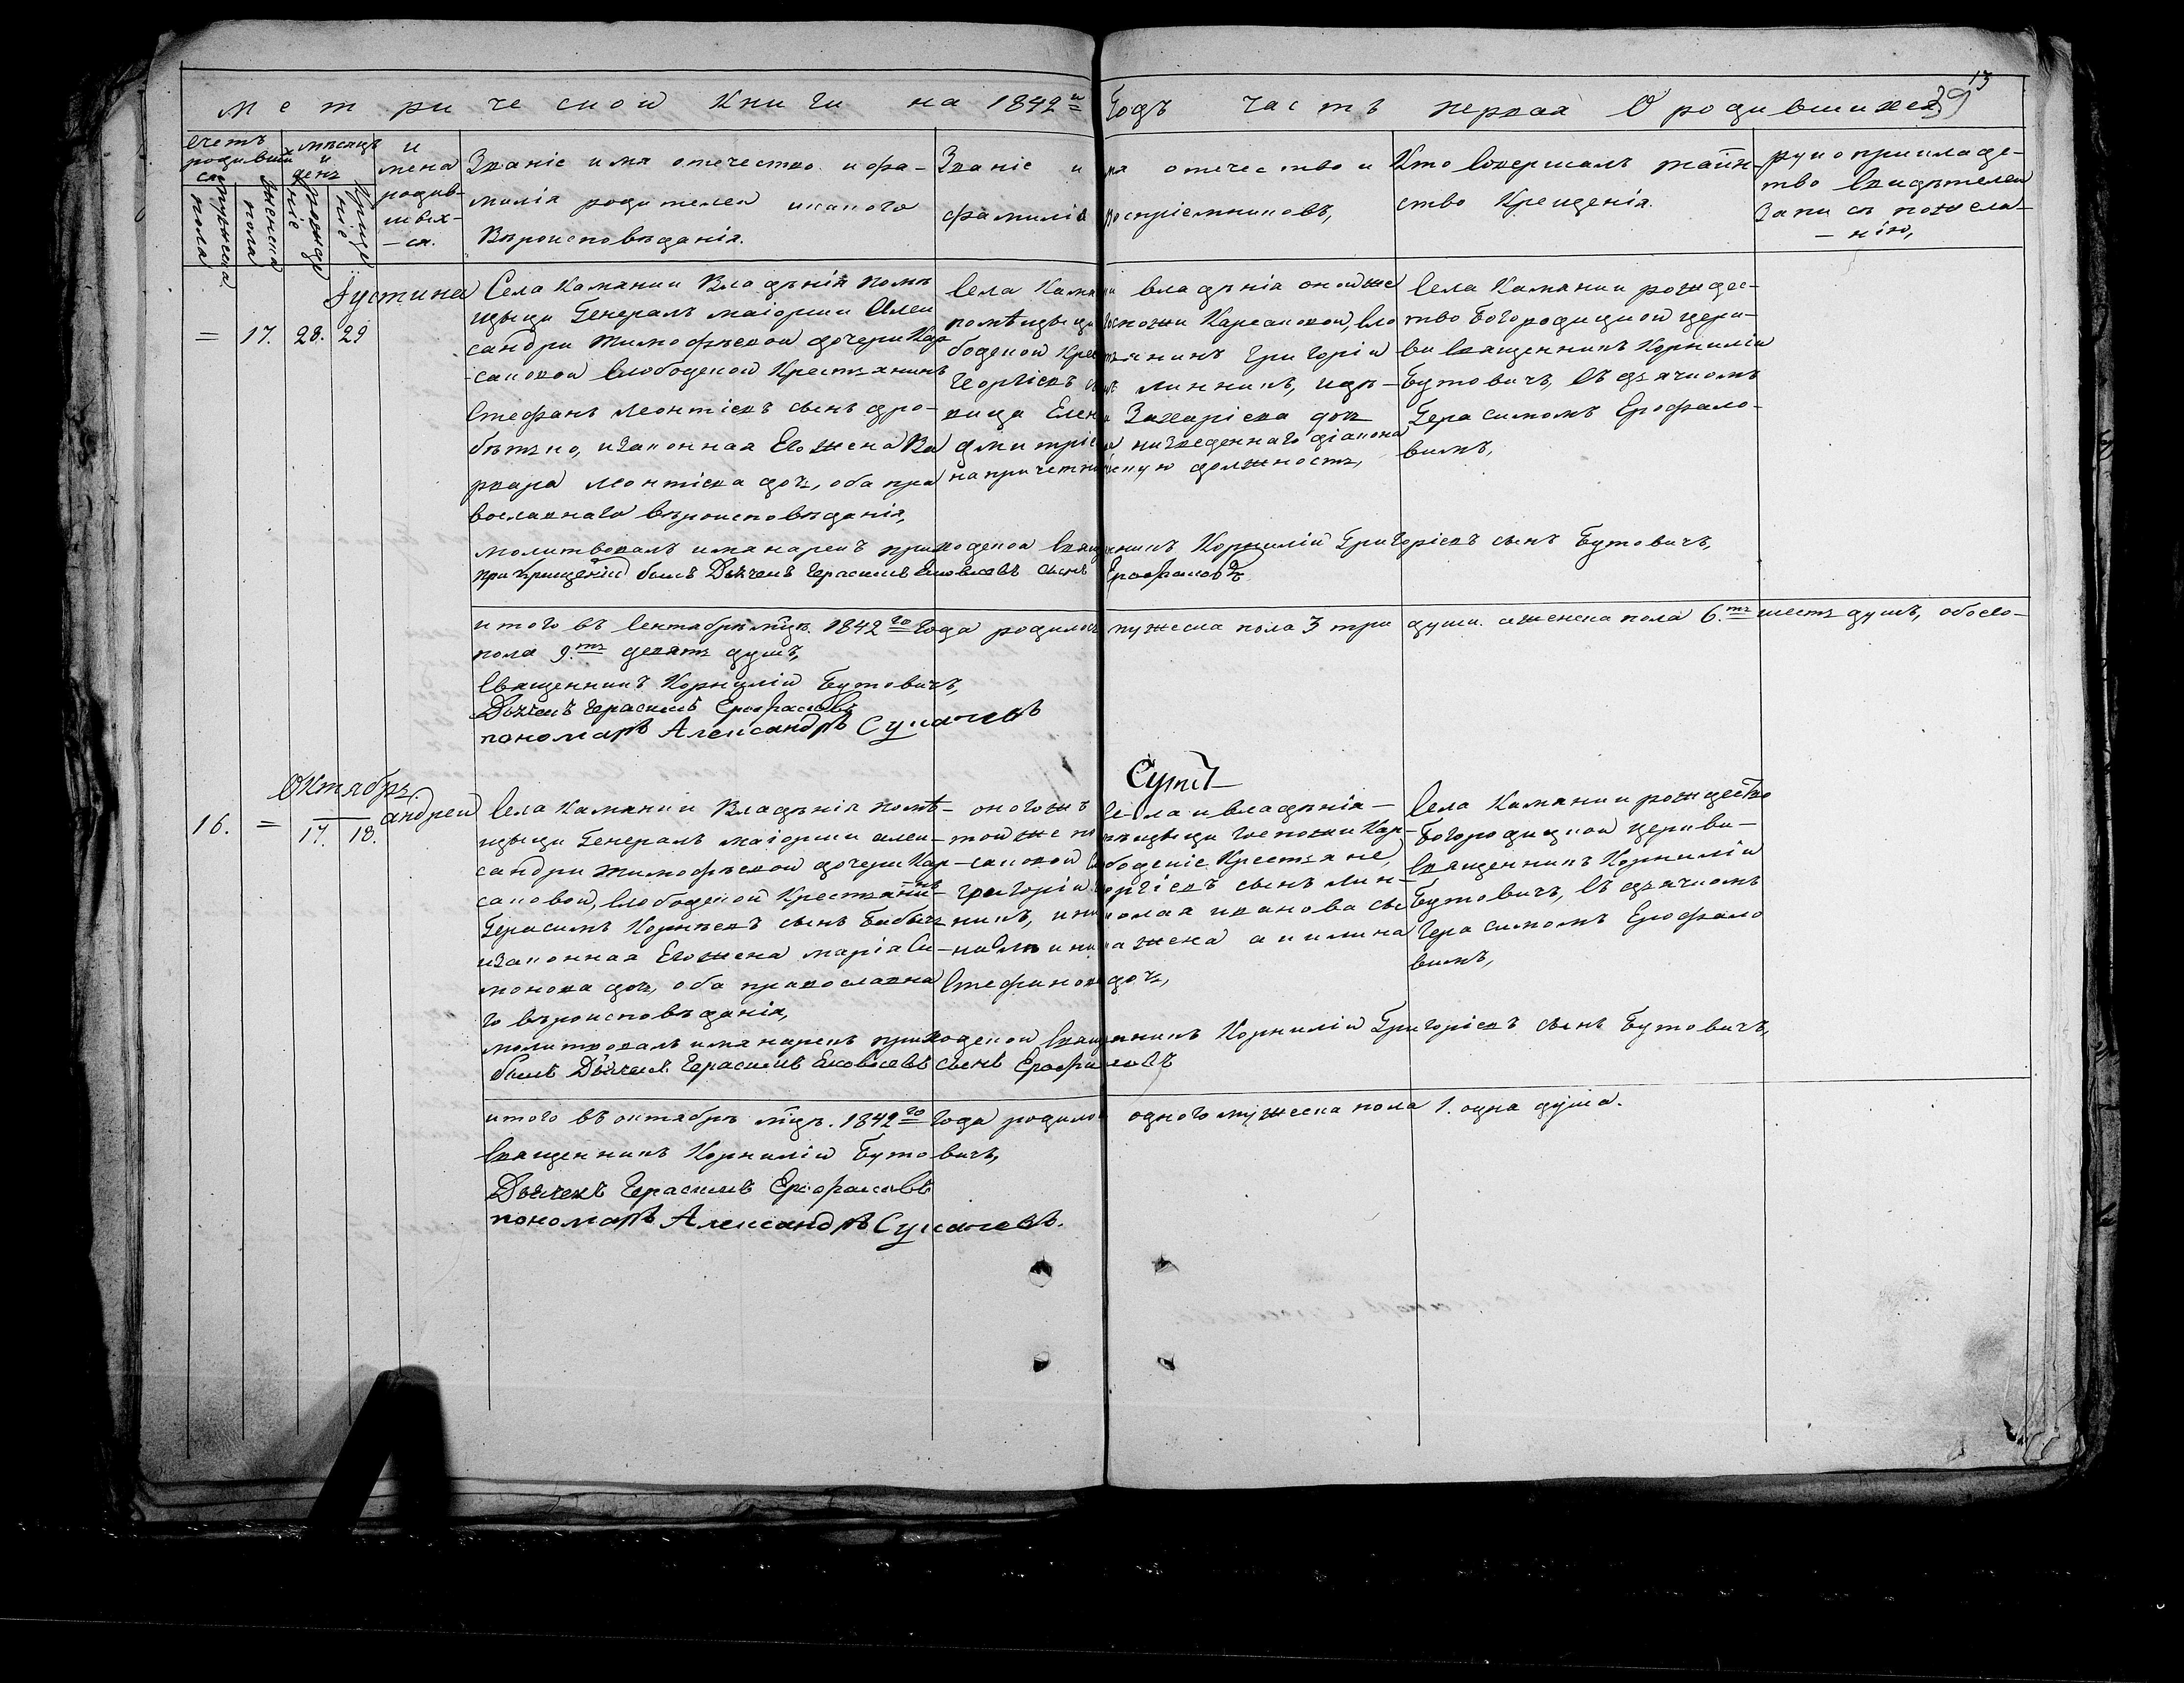 13
39
Метрической Книги на 1842й Годъ часть первая О родившихся
счетъ родившихся
мужеска пола
женска пола
месяцъ и день
рожденіе
крещеніе
имена родив-
шихся.
Званіе имя отечество и фа-
милія родителей и какого
Вѣроисповѣданія.
Званіе имя отечество и
фамилія воспріемниковъ,
Кто Совершалъ таин-
ство Крещенія.
рукоприкладс-
тво Свидѣтелей
Записи по жела-
нію,
= 17. 28. 29
Іустина
Села Камянки Владѣнія помѣ
щыци Генералъ маіорши Алек
сандри Тимофѣевой дочери Кар
саковой Слободской Крестьянинъ
Стефанъ Леонтіевъ сынъ дро-
бѣтько, и Законная Его жена Ва
рвара Леонтіева доч, оба пра
вославнаго вѣроисповѣданія,
Села Камянки владѣнія онойже
помѣщыци Госпожи Карсаковой, Сло
бодской Крестьянинъ Григорій
Георгіевъ сынъ линникъ, и дѣ-
вица Елена Захаріева доч
дмитріева низведеннаго діакона
на причетническую должность,
Села Камянки рождес-
тво Богородицкой церк-
ви Священникъ Корнилій
Бутовичъ, Съ дьячкомъ
Герасимомъ Ерофало-
вимъ,
молитвовалъ имя нарекъ приходской Священникъ Корнилій Григоріевъ сынъ Бутовичъ,
при крещеніи былъ Дьячекъ Герасимъ Яковлевъ сынъ Ерофаловъ
итого въ Сентябрѣ мцѣ. 1842го Года родилось мужеска пола 3 три души. а женска пола 6.ть шесть душъ, обоего
пола 9.ть девять душъ,
Священникъ Корнилій Бутовичъ,
Дьячекъ Герасимъ Ерофаловъ
пономарь Александръ Сукачевъ
Октябрь.
16. = 17. 18.
андрей
Села Камянки Владѣнія помѣ-
щыци Генералъ маіорши алек-
сандри Тимофѣевой дочери Кар-
саковой, Слободской Крестьянинъ
Герасимъ Корнѣевъ сынъ Бабычъ
и Законная Его жена марія Си-
монова доч, оба православна
го вѣроисповѣданія,
Суть
оногожъ Села и владѣнія
тойже помѣщыци Госпожи Кар-
саковой Слободскіе Крестьяне,
Григорій Георгіевъ сынъ лин-
никъ, и николая иванова сы
на жена акилина
Стефанова доч,
Села Камянки рождество
Богородицкой церкви
Священникъ Корнилій
Бутовичъ, Съ дьячкомъ
Герасимомъ Ерофало
вимъ,
молитвовалъ имя нарекъ приходской Священникъ Корнилій Григоріевъ сынъ Бутовичъ,
былъ Дьячекъ Герасимъ Яковлевъ сынъ Ерофаловъ
итого въ октябрѣ мцѣ. 1842го Года родилось одного мужеска пола 1. одна душа.
Священникъ Корнилій Бутовичъ,
Дьячекъ Герасимъ Ерофаловъ
пономарь Александръ Сукачевъ.